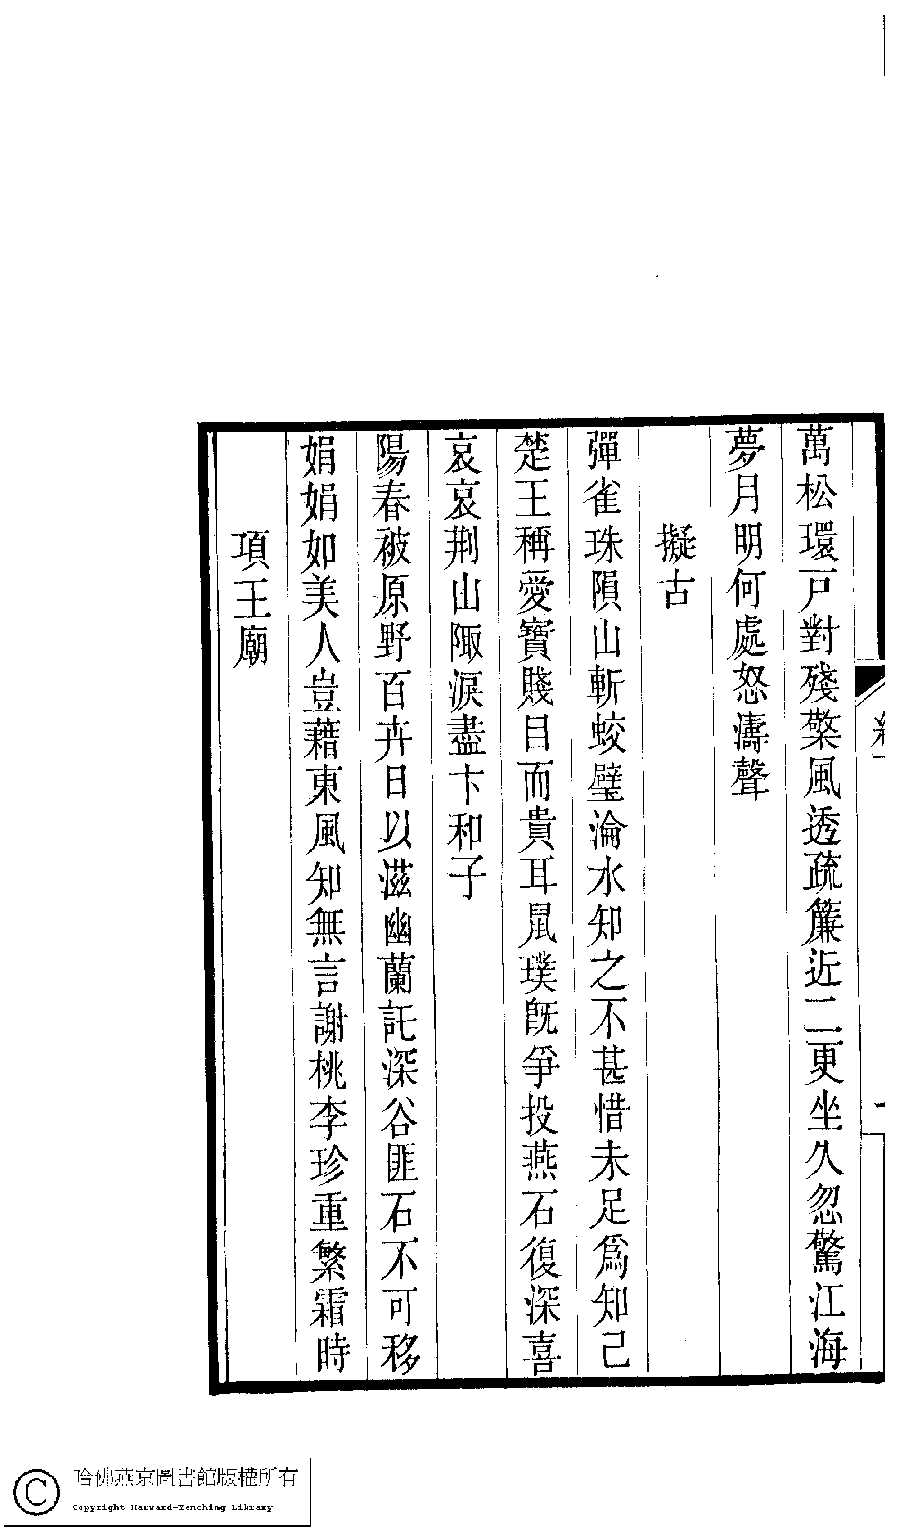 萬松環戸對殘檠風透疏簾近二更坐久忽驚江海
夢月明何處怒濤聲
擬古
彈雀珠隕山斬蛟璧淪水知之不甚惜未足爲知己
楚王稱愛寶賤目而貴耳鼠璞旣爭投燕石復深喜
哀哀荆山陬淚盡卞和子
陽春被原野百卉日以滋幽蘭託深谷匪石不可移
娟娟如美人豈藉東風知無言謝桃李珍重繁霜時
項王廟
哈佛燕京圖書館版權所有
Copyright Harvard-Yenching Library